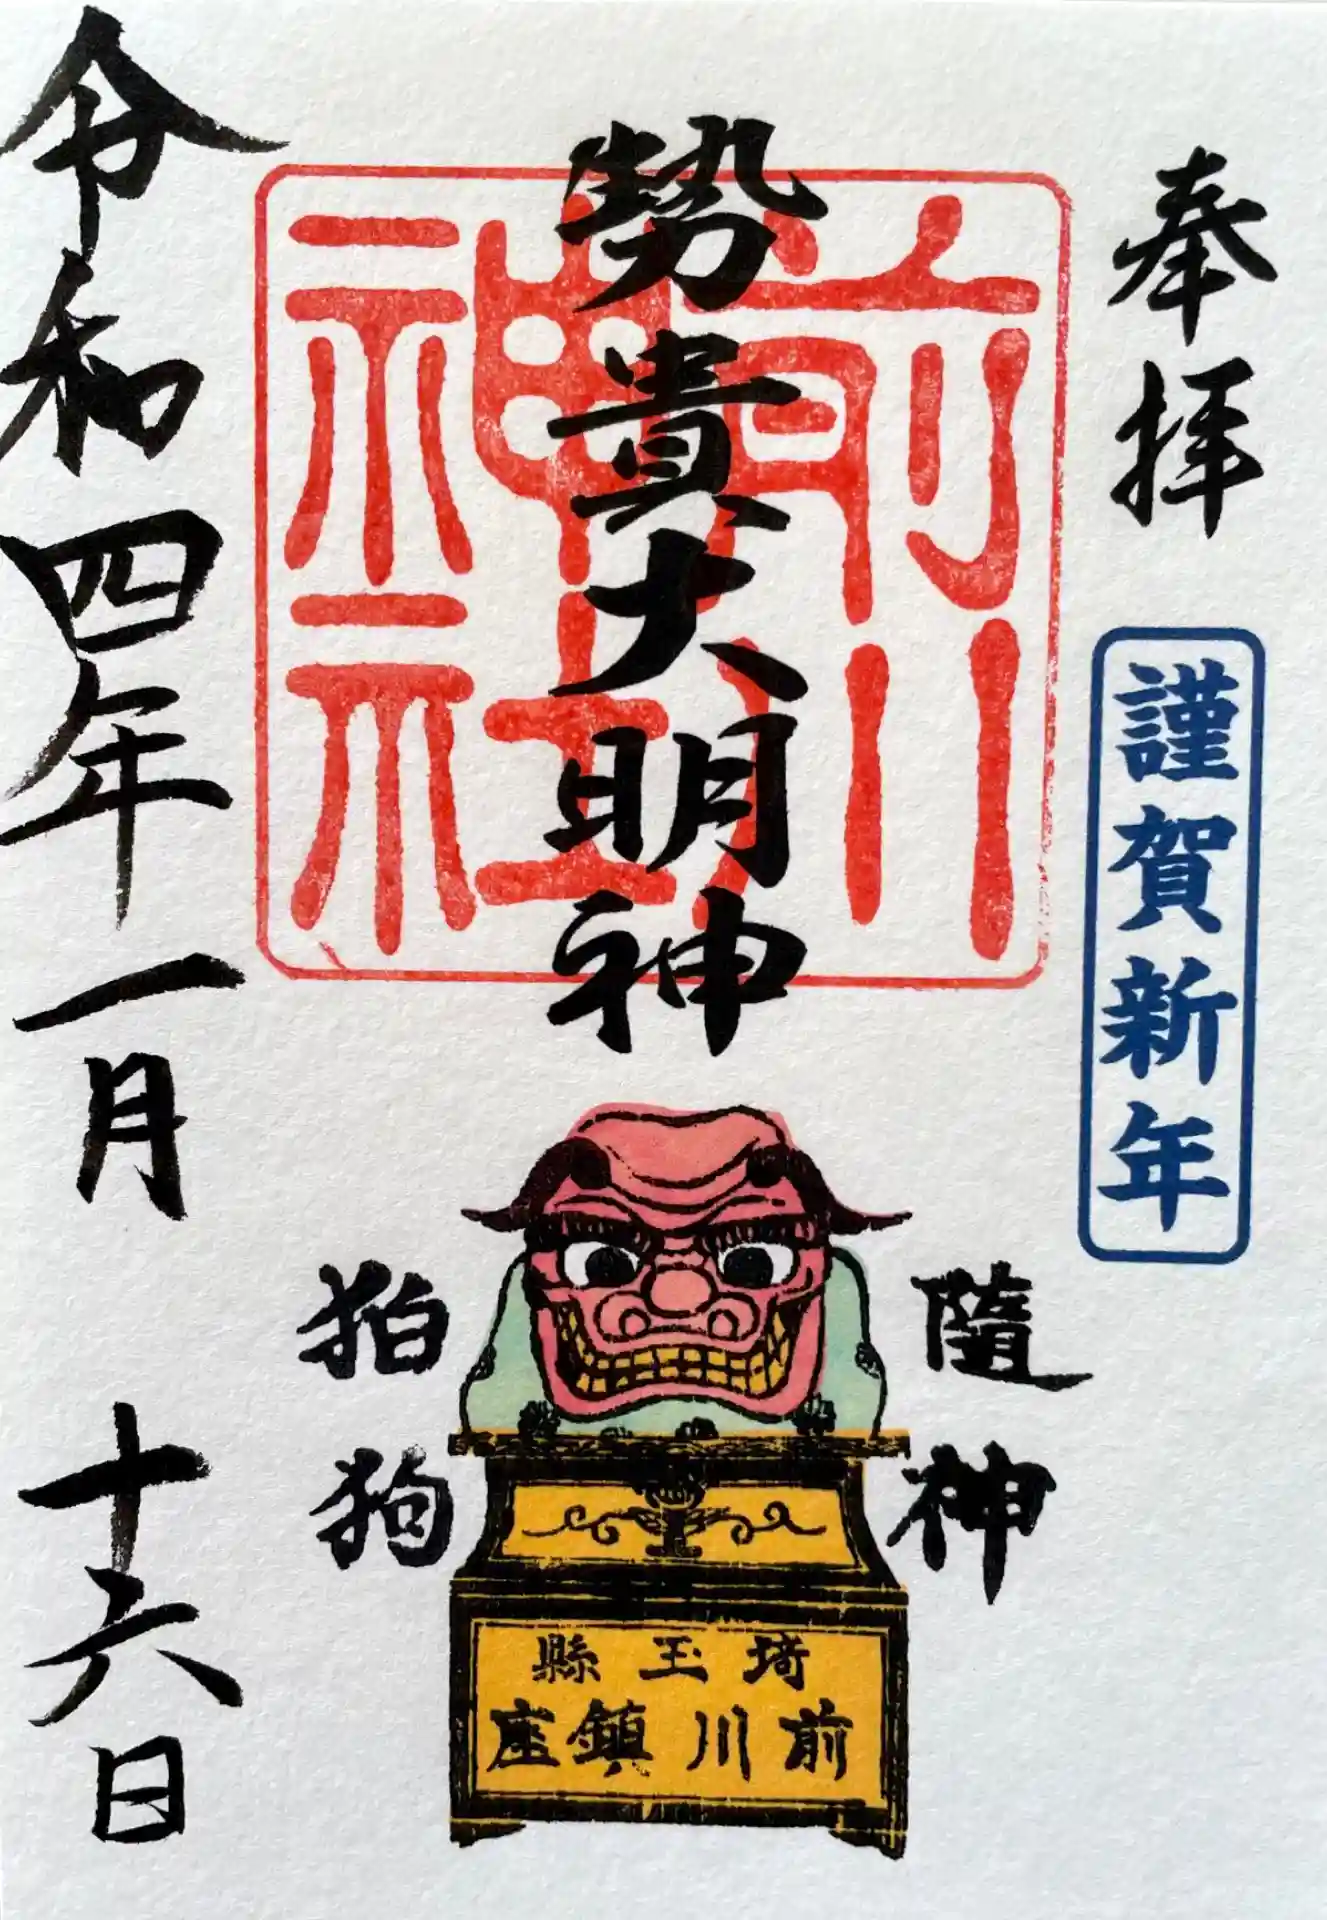 奉拝
謹賀新年
勢貴大明神
前川
神社
隨神
狛狗
埼玉縣
前川鎮座
令和四年一月十六日